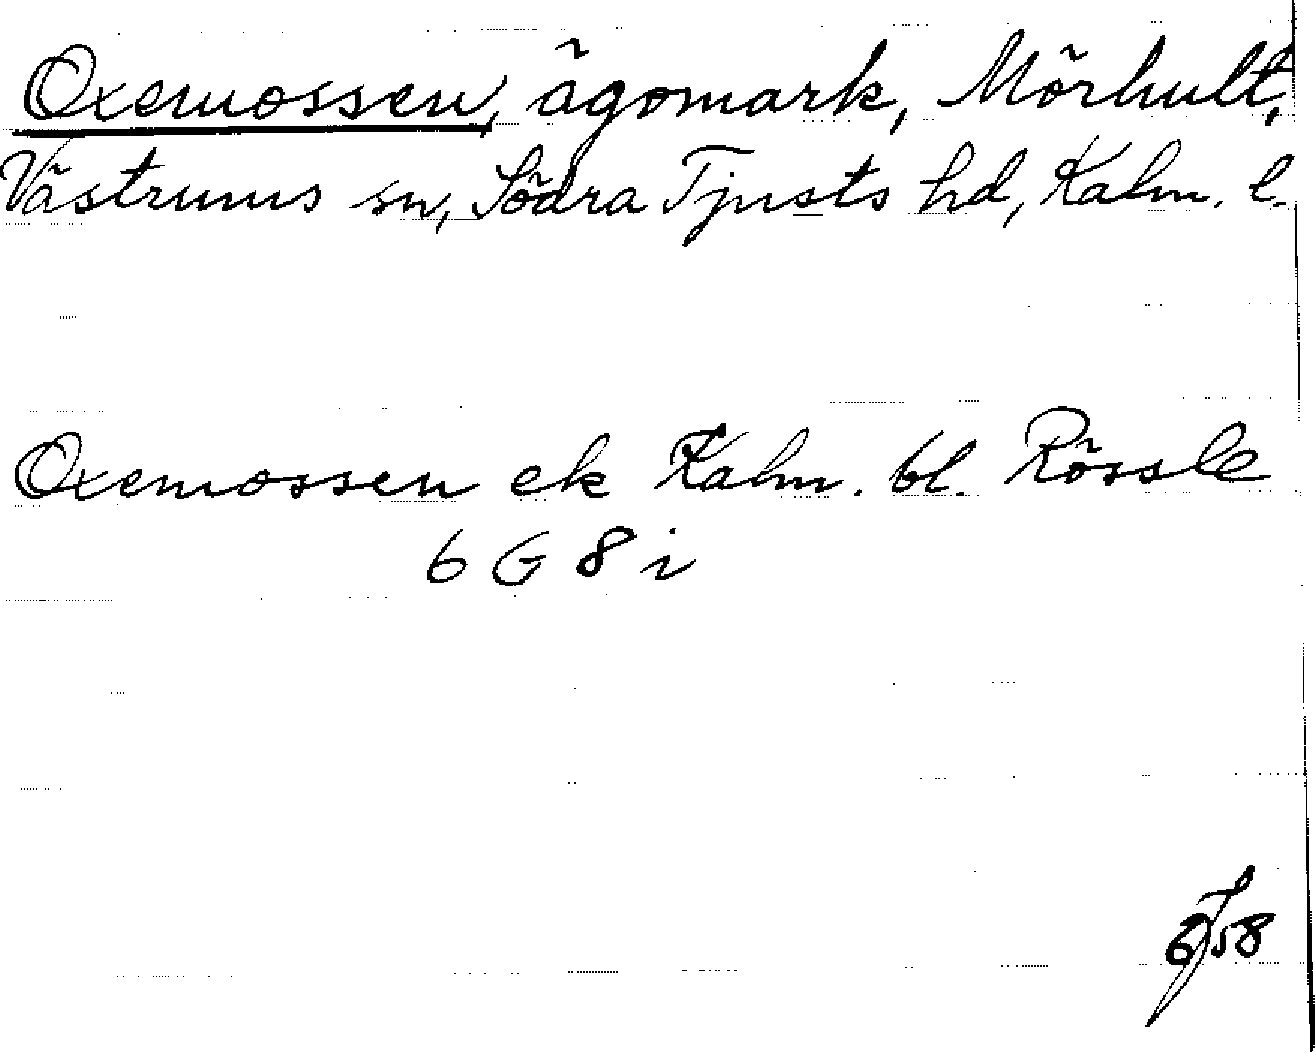 Oxemossen, ägomark, Mörhult,
Västrums sn, Södra Tjusts hd, Kalm. l.
Oxemossen ek Kalm. bl. Rössle
6 G 8 i